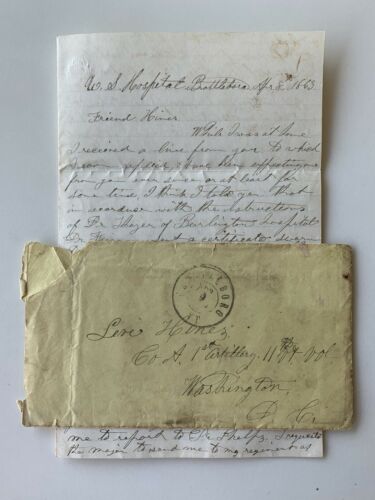 U. S. Hospital Brattleboro Apr 8 1863
Friend Hiner
While I was at home
I received a line from you to which
soon
from you ever since or at least for
some time, I think I told you that
in accordance with the instructions
of Dr Thayer of Burlington Hospital
a certificate
BORO
9
VT
Levi Hiner
Co A. 1st Artillery 11th Vt Vol
Washington
D. C.
me to report to Dr Phelps, I
the major to send me to my regiment as